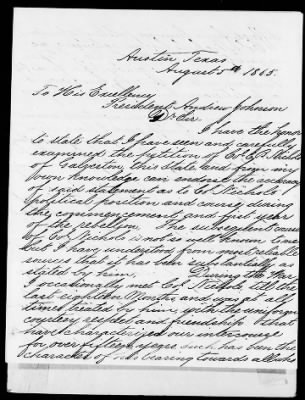 Austin, Texas
August 5th 1865.
To His Excellency
President Andrew Johnson
Dr Sir.
I have the honor
to state that I have seen and carefully
examined the petition of
of Galveston, this State and from my
own knowledge can the
of said statement as to Col. Nichols
political position and course during
the commencement and first year
of the rebellion. The subsequent course
of Col. Nichols is not so well known to me
but I have understood from most reliable
sources that it has been substantially as
stated by him. During the War
I occasionally met Col. Nichols till the
last eighteen Months, and was at all
times treated by him, with the uniform
courtesy, respect and friendship that
have characterized our intercourse
for over fifteen years such has been the
character of his bearing towards all